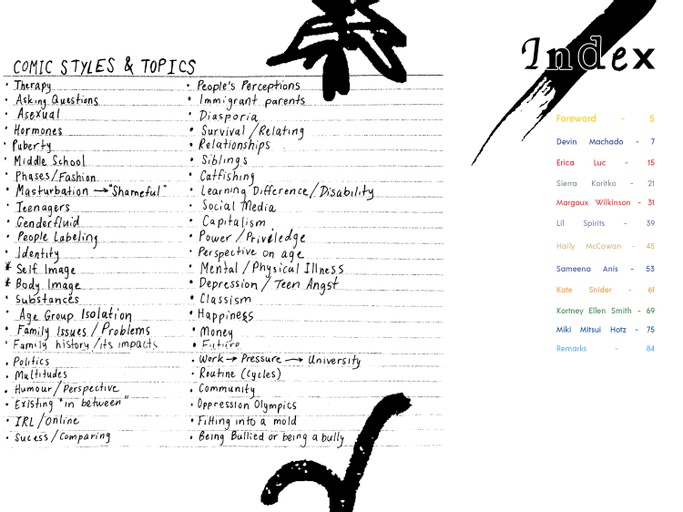 COMIC STYLES & TOPICS
• Therapy
• Asking Questions
• Asexual
• Hormones
• Puberty
• Middle School
• Phases/Fashion
• Masturbation → "Shameful"
• Teenagers
• Genderfluid
• People Labeling
• Identity
* Self Image
* Body Image
• Substances
• Age Group Isolation
• Family Issues / Problems
• Family history / its impacts
• Politics
• Multitudes
• Humour / Perspective
• Existing "in between"
• IRL / Online
• Sucess / Comparing
• People's Perceptions
• Immigrant parents
• Diasporia
• Survival / Relating
• Relationships
• Siblings
• Catfishing
• Learning Difference / Disability
• Social Media
• Capitalism
• Power / Priviledge
• Perspective on age
• Mental / Physical Illness
• Depression / Teen Angst
• Classism
• Happiness
• Money
• Future
• Work → Pressure → University
• Routine (cycles)
• Community
• Oppression Olympics
• Fitting into a mold
• Being Bullied or being a bully
Index
Foreword - 5
Devin Machado - 7
Erica Luc - 15
Sierra Koritko - 21
Margaux Wilkinson - 31
Lil Spirits - 39
Haily McCowan - 45
Sameena Anis - 53
Kate Snider - 61
Kortney Ellen Smith - 69
Miki Mitsui Hotz - 75
Remarks - 84